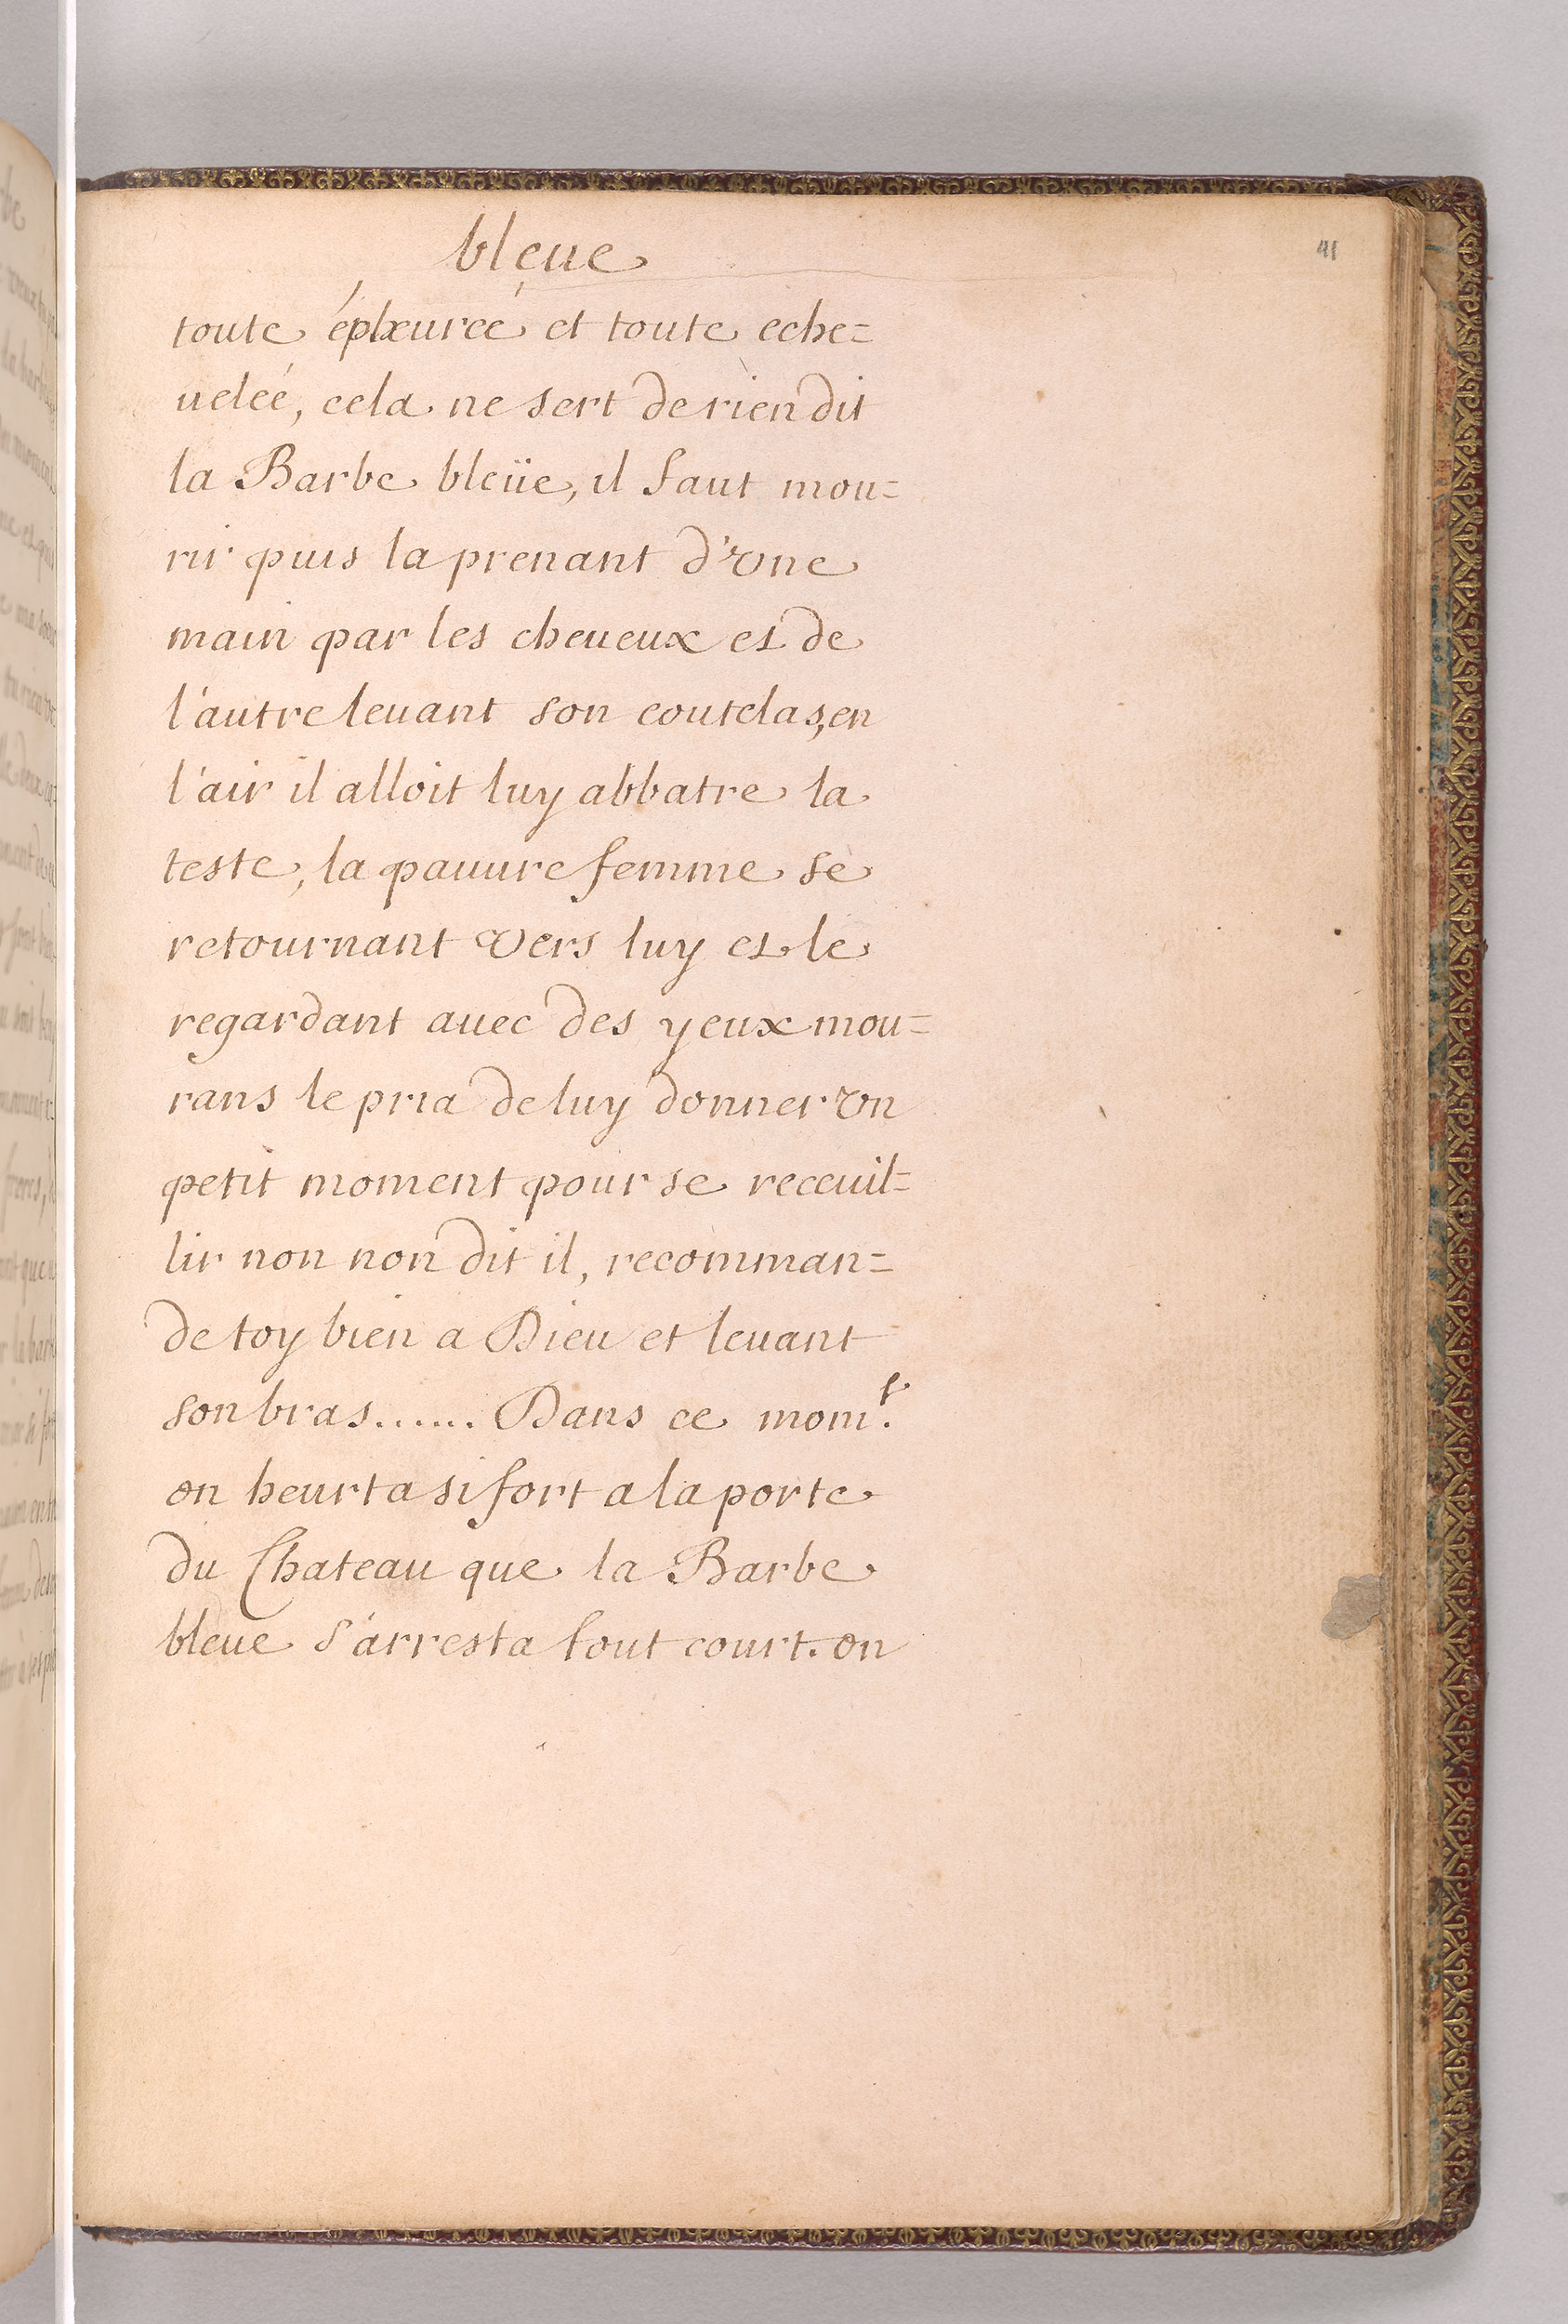 bleue
41
toute éplœurée et toute eche=
uelée, cela ne sert de rien dit
la Barbe bleüe, il faut mou=
rir puis la prenant d'vne
main par les cheueux et de
l'autre leuant son coutelas, en
l'air il alloit luy abbatre la
teste, la pauure femme se
retournant vers luy et le
regardant auec des yeux mou=
rans le pria de luy donner vn
petit moment pour se receuil=
lir non non dit il, recomman=
de toy bien a Dieu et leuant
son bras...... Dans ce mom.t
on heurta si fort a la porte
du Chateau que la Barbe
bleue s'arresta tout court. on